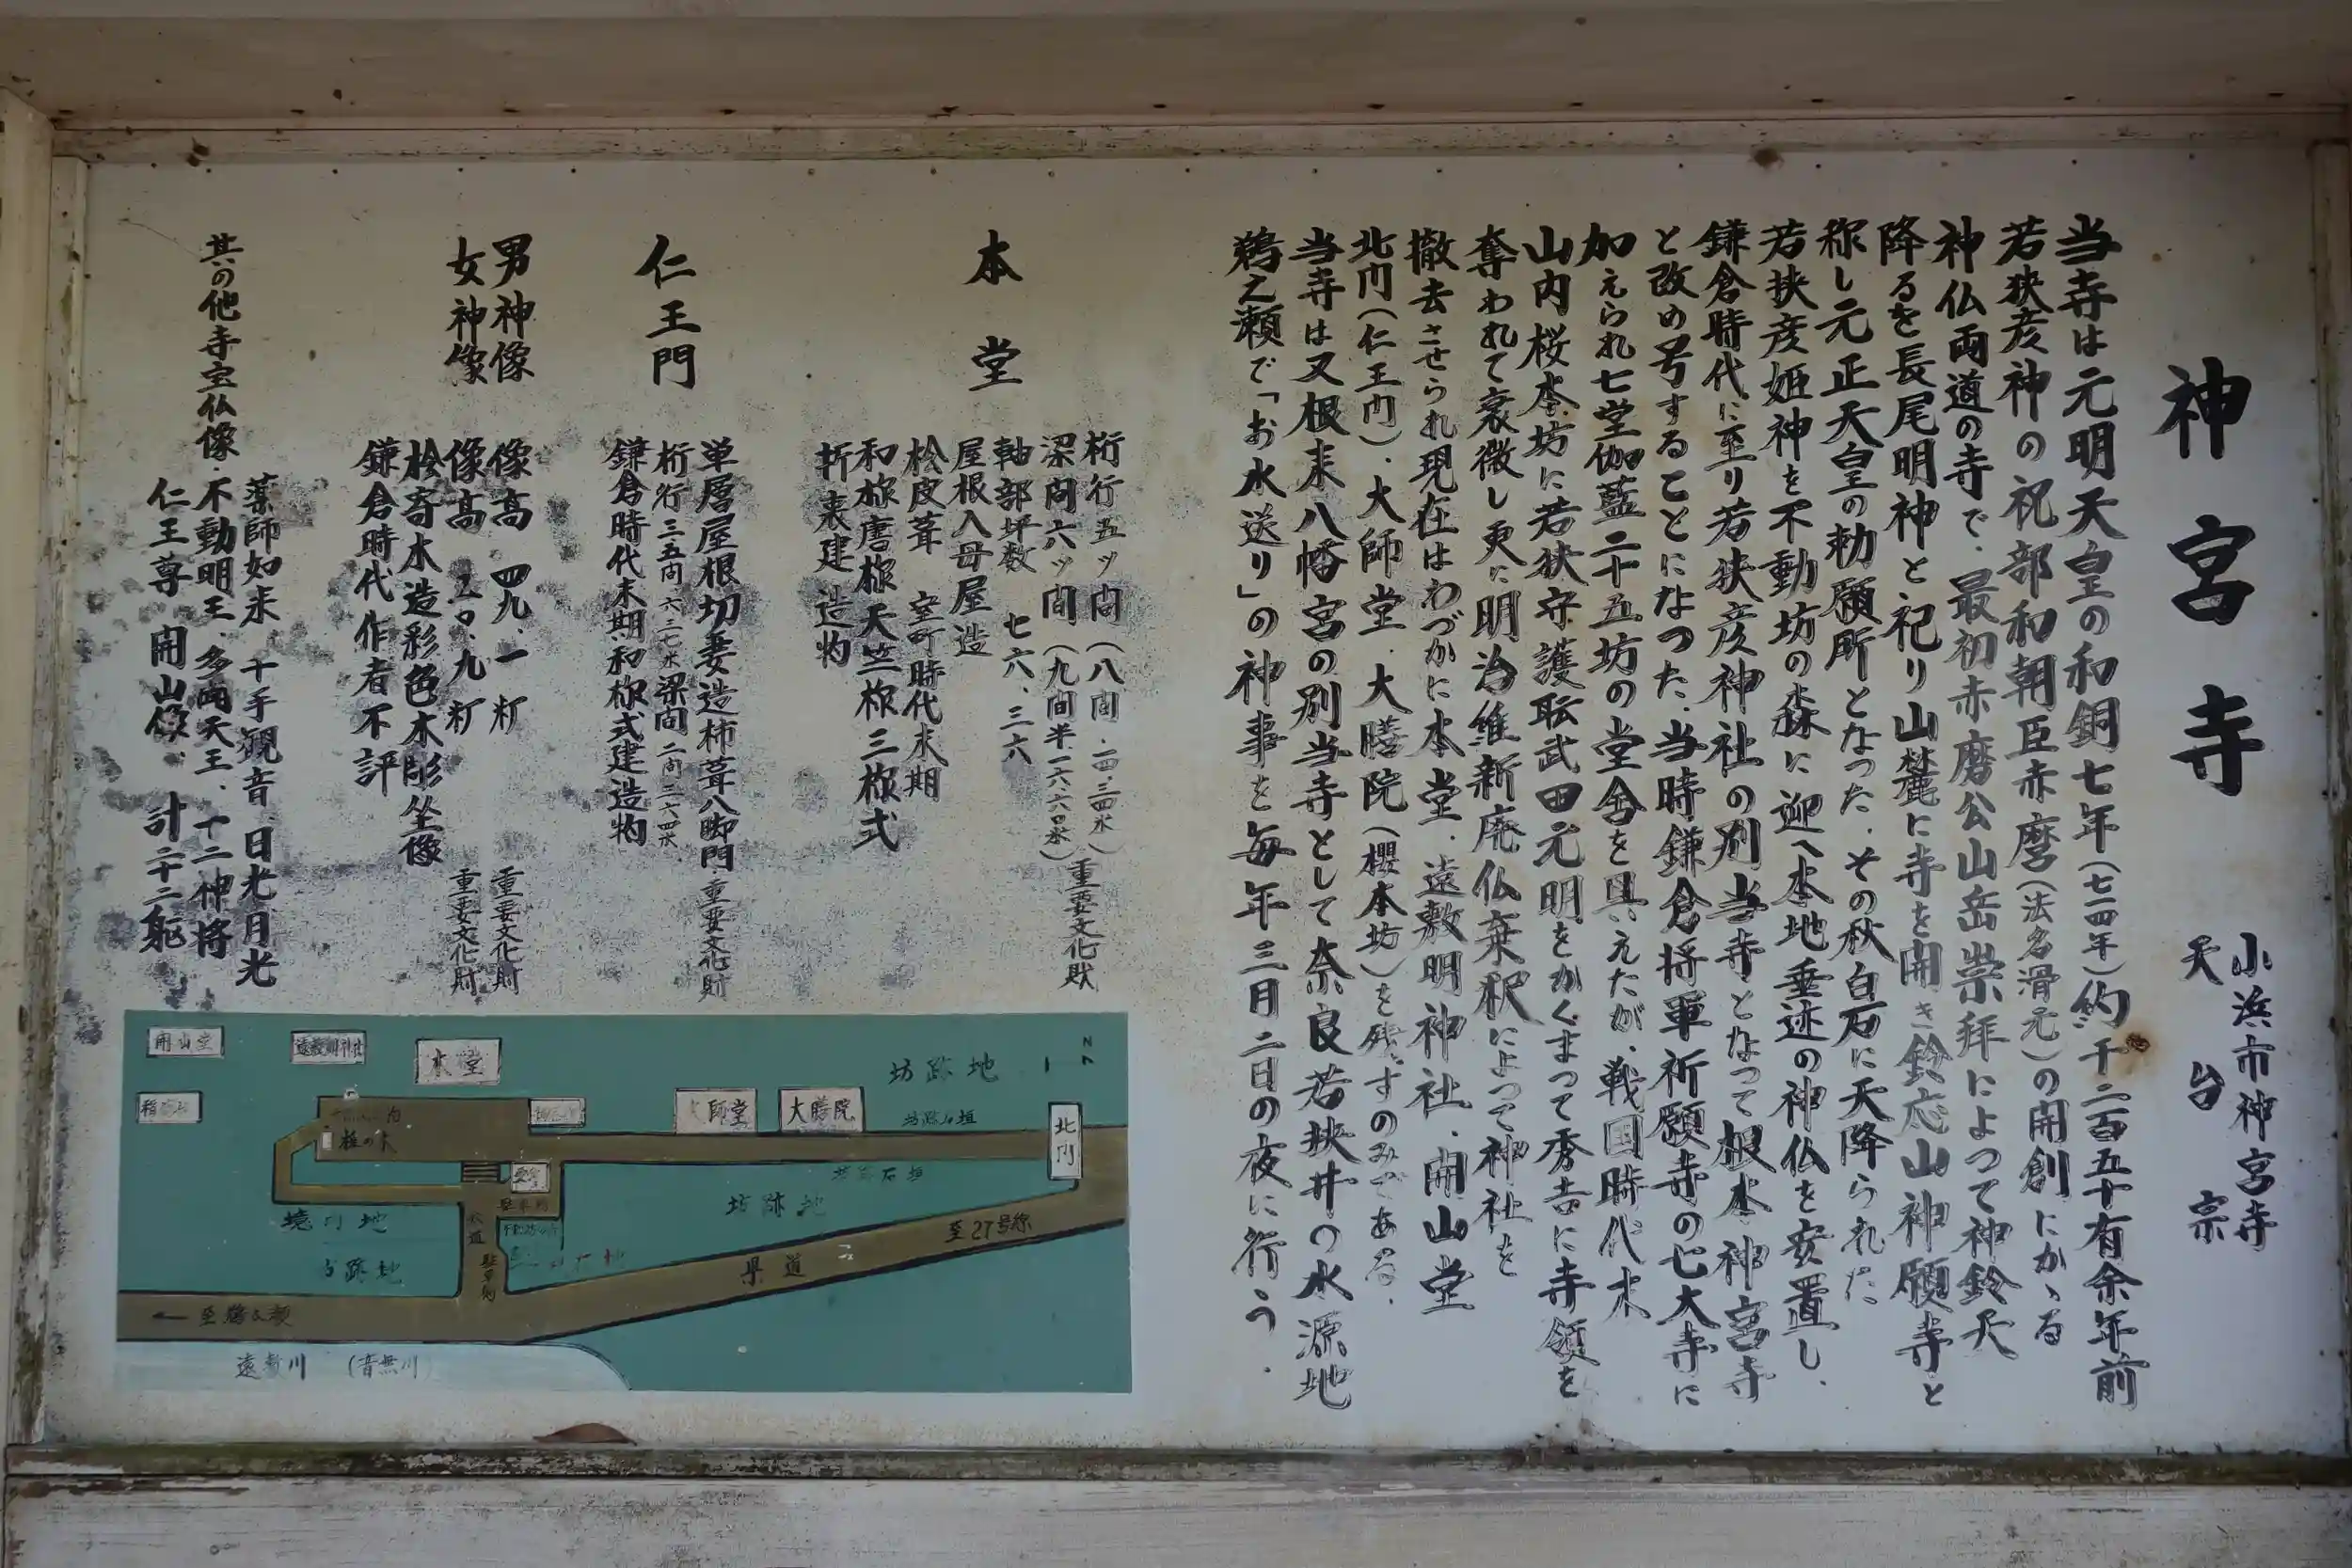 神宮寺
小浜市神宮寺
天台宗
当寺は元明天皇の和銅七年(七一四年)約千二百五十有余年前
若狭彦神の祝部和朝臣赤麿(法名滑元)の開創にかゝる
神仏両道の寺で、最初赤磨公山岳崇拝によつて神鈴天
降るを長尾明神と祀り山麓に寺を開き鈴応山神願寺と
称し元正天皇の勅願所となつた、その秋白石に天降られた
若狭彦姫神を不動坊の森に迎へ本地垂迹の神仏を安置し、
鎌倉時代に至り若狭彦神社の別当寺となつて根本神宮寺
と改め号することになつた、当時鎌倉将軍祈願寺の七大寺に
加えられ七堂伽藍二十五坊の堂舎を具えたが、戦国時代末
山内桜本坊に若狭守護職武田元明をかくまつて秀吉に寺領を
奪われて衰微し更に明治維新廃仏棄釈によつて神社を
撤去させられ現在はわづかに本堂、遠敷明神社、開山堂
北門(仁王門)、大師堂、大膳院(櫻本坊)を残すのみである、
当寺は又根来八幡宮の別当寺として奈良若狭井の水源地
鵜之瀬で「お水送り」の神事を毎年三月二日の夜に行う、
本堂
桁行五ッ間(八間、一四、三四米)重要文化財
梁間六ッ間(九間半、一六、六〇米)
軸部坪数 七六、三六
屋根入母屋造
桧皮葺 室町時代末期
和様唐様天竺様三様式
折衷建造物
仁王門
単層屋根切妻造柿葺八脚門 重要文化財
桁行三、五間 六、三七米 梁間二間 三、六四米
鎌倉時代末期和様式建造物
男神像 像高 四九、一糎 重要文化財
女神像 像高 五〇、九糎 重要文化財
桧寄木造彩色木彫坐像
鎌倉時代作者不評
其の他寺宝仏像
薬師如来 千手観音、日光月光
不動明王、多聞天王、十二神将
仁王尊 開山像、計二十二躯
開山堂
遠敷明神社
本堂
坊跡地
N
大師堂
大膳院
坊跡石垣
北門
椎の木
坊跡石垣
境内地
坊跡地
参道
駐車場
至27号線
県道
坊跡地
← 至鵜之瀬
遠敷川 (音無川)